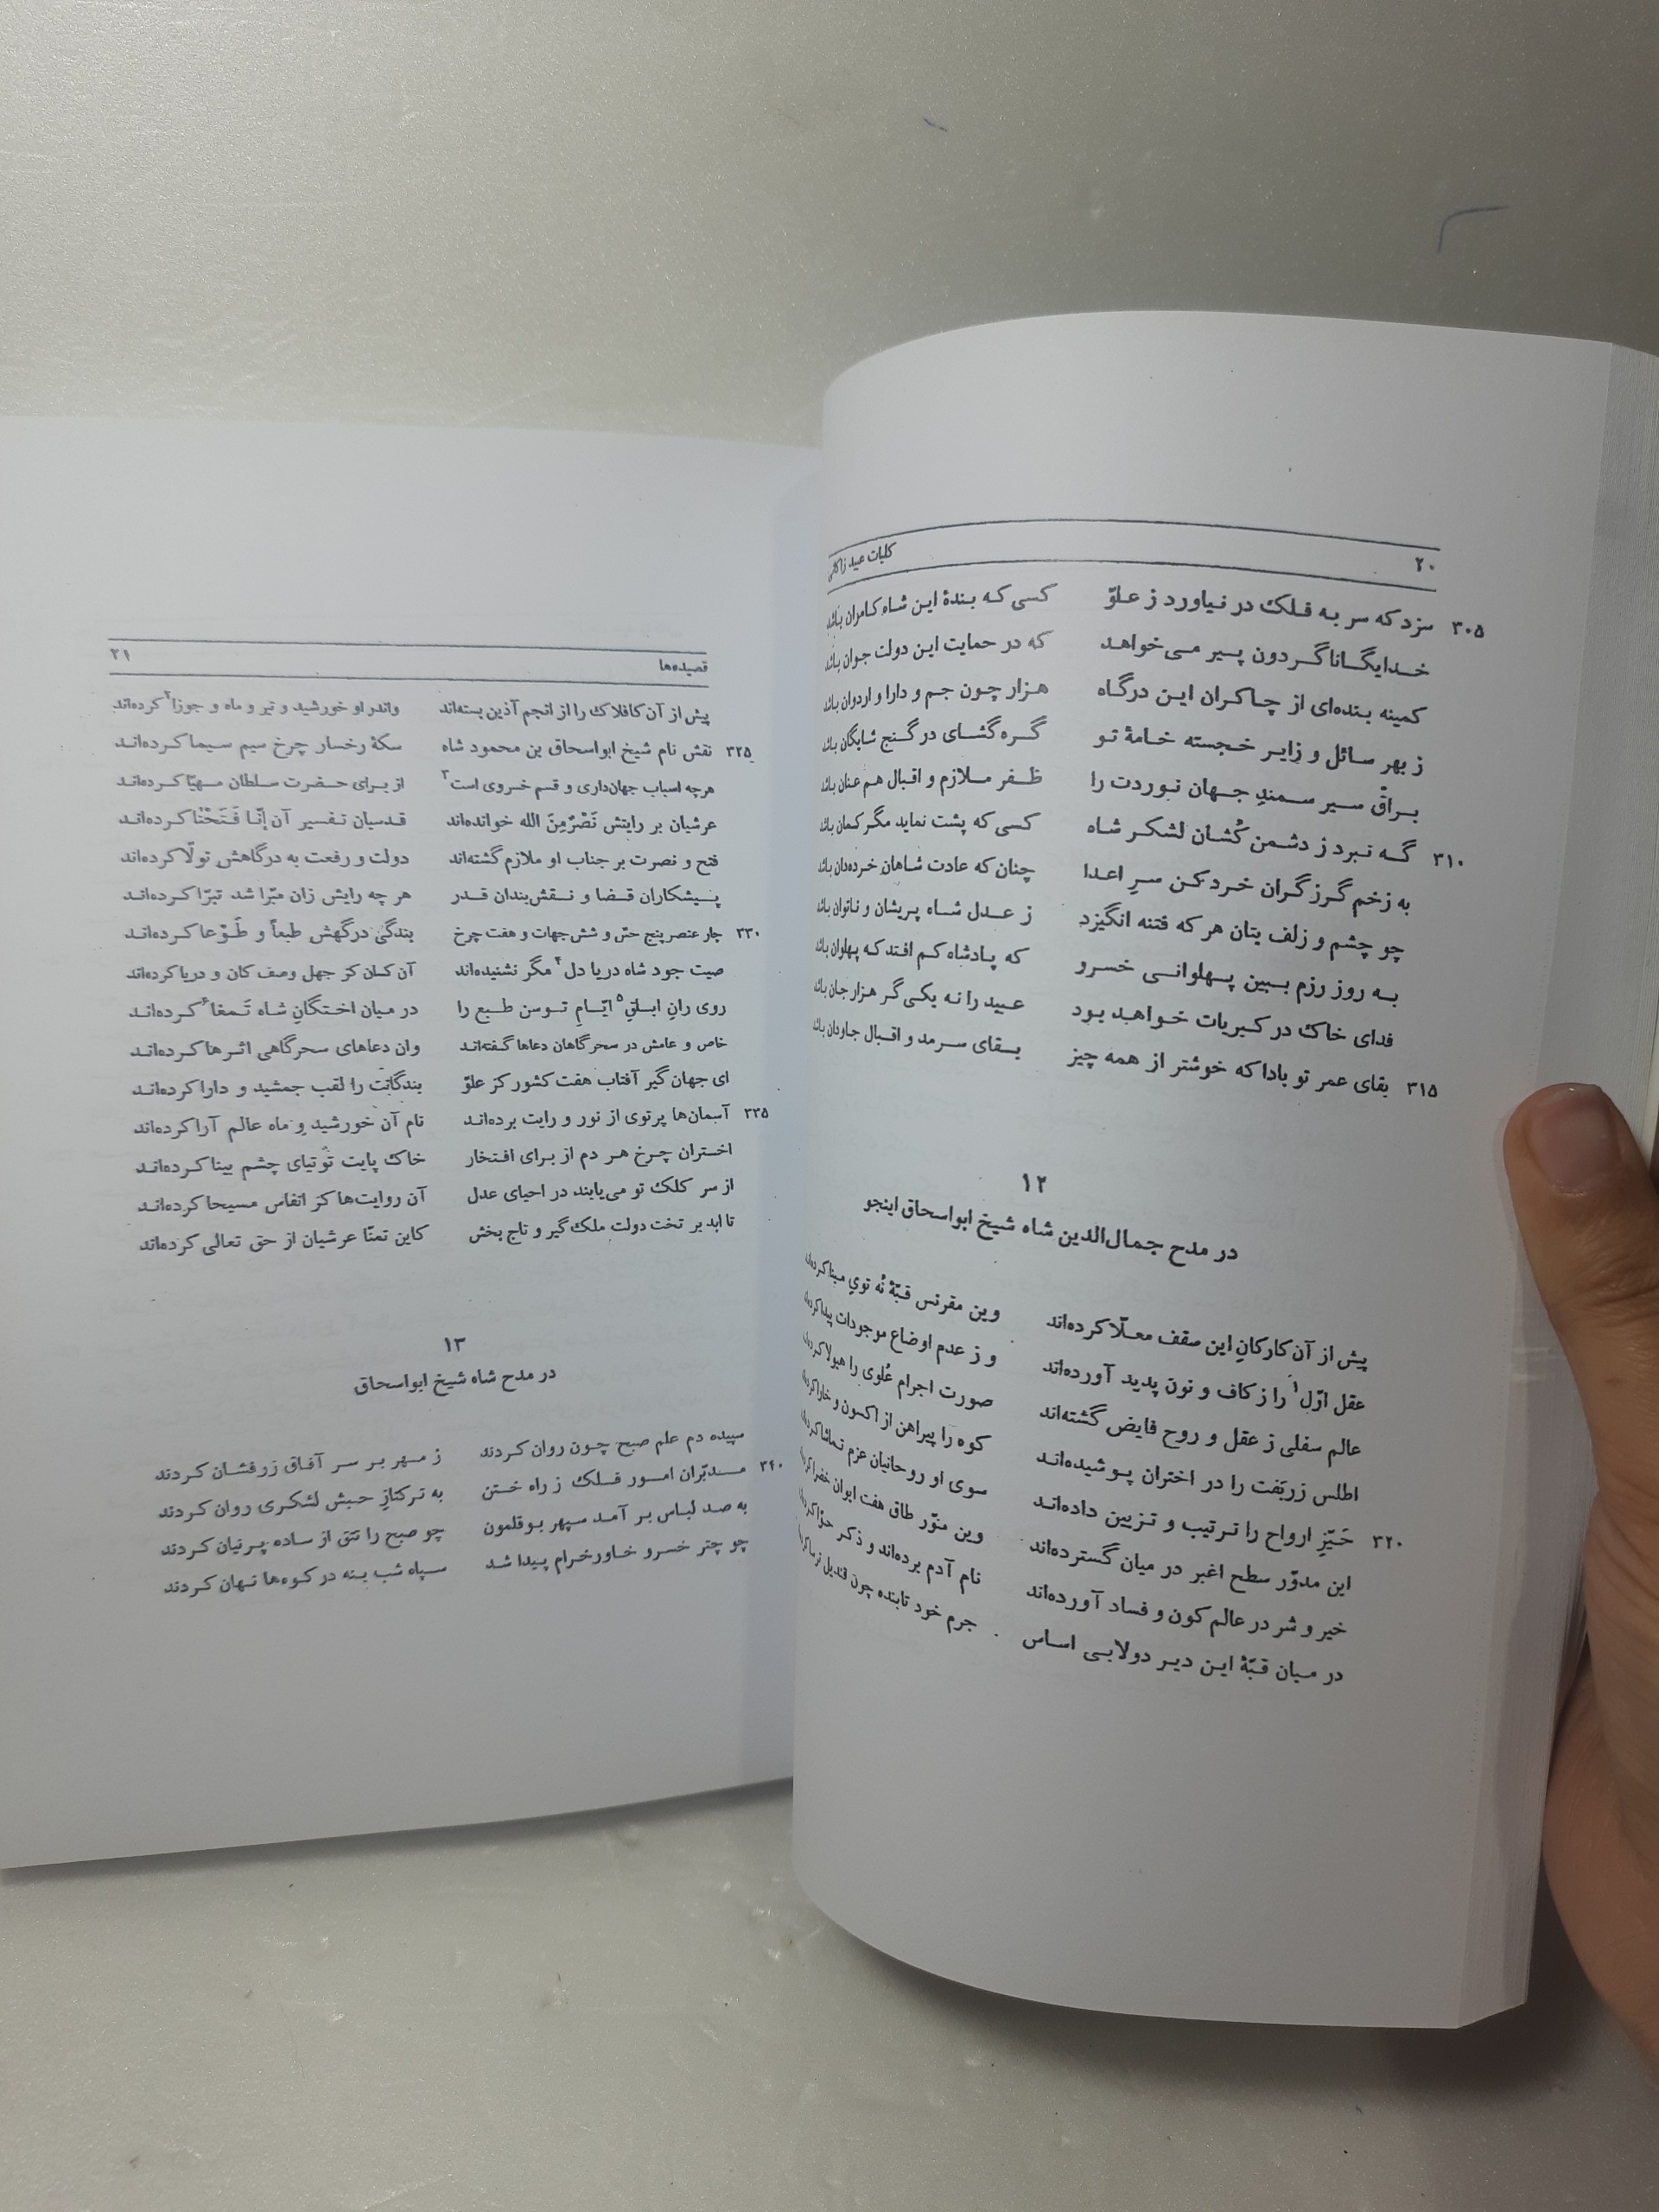 ۲۰ کلیات عبید زاکانی
۳۰۵ سزد که سر به فلک در نیاورد ز علوّ کسی که بندهٔ این شاه کامران باشد
خدایگانا گردون پیر می‌خواهد که در حمایت این دولت جوان باشد
کمینه بنده‌ای از چاکران این درگاه هزار چون جم و دارا و اردوان باشد
ز بهر سائل و زایر خجسته خامهٔ تو گره گشای در گنج شایگان باشد
براقْ سیر سمندِ جهان نوردت را ظفر ملازم و اقبال هم عنان باشد
۳۱۰ گه نبرد ز دشمن کُشان لشکر شاه کسی که پشت نماید مگر کمان باشد
به زخم گرز گران خرد کن سرِ اعدا چنان که عادت شاهان خرده‌دان باشد
چو چشم و زلف بتان هر که فتنه انگیزد ز عدل شاه پریشان و ناتوان باشد
به روز رزم ببین پهلوانی خسرو که پادشاه کم افتد که پهلوان باشد
فدای خاک در کبریات خواهد بود عبید را نه یکی گر هزار جان باشد
۳۱۵ بقای عمر تو بادا که خوشتر از همه چیز بقای سرمد و اقبال جاودان باشد
۱۲
در مدح جمال‌الدین شاه شیخ ابواسحاق اینجو
پیش از آن کارکانِ این سقف معلّا کرده‌اند وین مقرنس قبّهٔ نُه تویِ مینا کرده‌اند
عقل اوّل۱ را ز کاف و نون پدید آورده‌اند و ز عدم اوضاع موجودات پیدا کرده‌اند
عالم سفلی ز عقل و روح فایض گشته‌اند صورت اجرام عُلوی را هیولا کرده‌اند
اطلس زربَفت را در اختران پوشیده‌اند کوه را پیراهن از اکسون و خارا کرده‌اند
۳۲۰ حَیّزِ ارواح را ترتیب و تزیین داده‌اند سوی او روحانیان عزم تماشا کرده‌اند
این مدوّر سطح اغبر در میان گسترده‌اند وین منوّر طاق هفت ایوان خضرا کرده‌اند
خیر و شر در عالم کون و فساد آورده‌اند نام آدم برده‌اند و ذکر حوّا کرده‌اند
در میان قبّهٔ این دیر دولابی اساس جرم خود تابنده چون قندیل ترسا کرده‌اند
قصیده‌ها ۲۱
پیش از آن کافلاک را از انجم آذین بسته‌اند واندر او خورشید و تیر و ماه و جوزا۲ کرده‌اند
۳۲۵ نقش نام شیخ ابواسحاق بن محمود شاه سکهٔ رخسار چرخ سیم سیما کرده‌اند
هرچه اسباب جهان‌داری و قسم خسروی است۳ از برای حضرت سلطان مهیّا کرده‌اند
عرشیان بر رایتش نَصْرٌمِنَ الله خوانده‌اند قدسیان تفسیر آن إنّا فَتَحْنا کرده‌اند
فتح و نصرت بر جناب او ملازم گشته‌اند دولت و رفعت به درگاهش تولّا کرده‌اند
پیشکاران قضا و نقش‌بندان قدر هر چه رایش زان مبّرا شد تبّرا کرده‌اند
۳۳۰ چار عنصر پنج حسّ و شش جهات و هفت چرخ بندگی درگهش طبعاً و طَوْعا کرده‌اند
صیت جود شاه دریا دل۴ مگر نشنیده‌اند آن کسان کز جهل وصف کان و دریا کرده‌اند
روی رانِ ابلقِ۵ ایّامِ توسن طبع را در میان اختگانِ شاه تَمغا۶ کرده‌اند
خاص و عامش در سحرگاهان دعاها گفته‌اند وان دعاهای سحرگاهی اثرها کرده‌اند
ای جهان گیر آفتاب هفت کشور کز علوّ بندگانْت را لقب جمشید و دارا کرده‌اند
۳۳۵ آسمان‌ها پرتوی از نور و رایت برده‌اند نام آن خورشید و ماه عالم آرا کرده‌اند
اختران چرخ هر دم از برای افتخار خاک پایت توتیای چشم بینا کرده‌اند
از سر کلک تو می‌یابند در احیای عدل آن روایت‌ها کز انفاس مسیحا کرده‌اند
تا ابد بر تخت دولت ملک گیر و تاج بخش کاین تمنّا عرشیان از حق تعالی کرده‌اند
۱۳
در مدح شاه شیخ ابواسحاق
سپیده دم علم صبح چون روان کردند ز مهر بر سر آفاق زرفشان کردند
۳۴۰ مدبّران امور فلک ز راه ختن به ترکتازِ حبش لشکری روان کردند
به صد لباس بر آمد سپهر بوقلمون چو صبح را تتق از ساده پرنیان کردند
چو چتر خسرو خاور خرام پیدا شد سپاه شب بنه در کوه‌ها نهان کردند